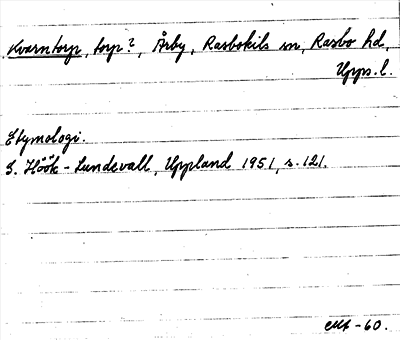 Kvarntorp, torp?, Årby, Rasbokils sn, Rasbo hd,
Upps. l.
Etymologi.
S. Höök-Lundevall, Uppland 1951, s. 121.
-60.